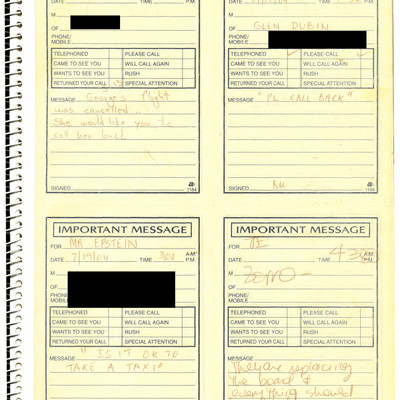 DATE TIME P.M.
M
OF
PHONE/
MOBILE
TELEPHONED PLEASE CALL
CAME TO SEE YOU WILL CALL AGAIN
WANTS TO SEE YOU RUSH
RETURNED YOUR CALL SPECIAL ATTENTION
MESSAGE
George's Flight
was cancelled..
She would like you to
call her back
SIGNED 1184
DATE TIME P.M.
M GLEN DUBIN
OF
PHONE/
MOBILE
TELEPHONED PLEASE CALL
CAME TO SEE YOU WILL CALL AGAIN
WANTS TO SEE YOU RUSH
RETURNED YOUR CALL SPECIAL ATTENTION
MESSAGE "PL CALL BACK"
SIGNED 1184
IMPORTANT MESSAGE
FOR MR EPSTEIN
DATE 7/19/04 TIME 300 A.M. P.M.
M
OF
PHONE/
MOBILE
TELEPHONED PLEASE CALL
CAME TO SEE YOU WILL CALL AGAIN
WANTS TO SEE YOU RUSH
RETURNED YOUR CALL SPECIAL ATTENTION
MESSAGE
" IS IT OK TO
TAKE A TAXI"
IMPORTANT MESSAGE
FOR JE
DATE TIME P.M.
M Zorro
OF
PHONE/
MOBILE
TELEPHONED PLEASE CALL
CAME TO SEE YOU WILL CALL AGAIN
WANTS TO SEE YOU RUSH
RETURNED YOUR CALL SPECIAL ATTENTION
MESSAGE They are replacing
the board &
everything should